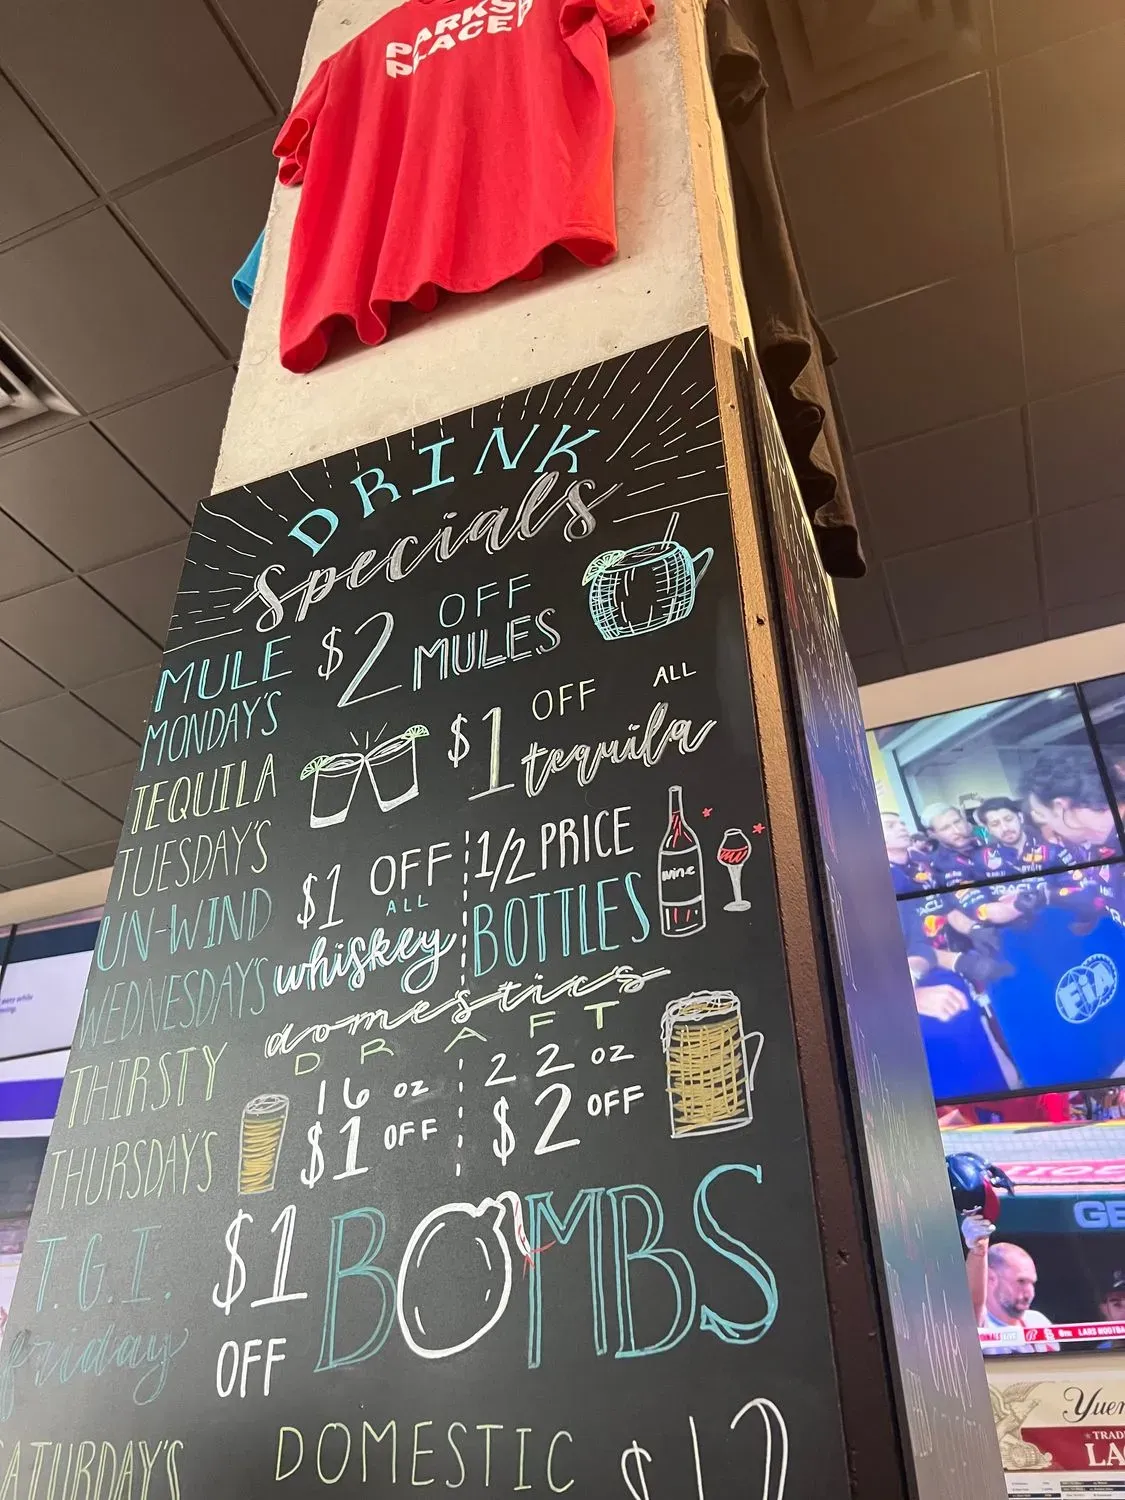 PARKS
PLACE
DRINK
Specials
MULE
MONDAY'S
$2 OFF
MULES
TEQUILA
TUESDAY'S
$1 OFF ALL
tequila
UN-WIND
WEDNESDAY'S
$1 OFF
ALL
whiskey
1/2 PRICE
BOTTLES
wine
THIRSTY
THURSDAY'S
domestics
DRAFT
16 oz
$1 OFF
22 oz
$2 OFF
T.G.I.
friday
$1
OFF
BOMBS
SATURDAY'S
DOMESTIC
ORACLE
FiA
GE
LARS NOOTBA
Yuen
TRAD
LA